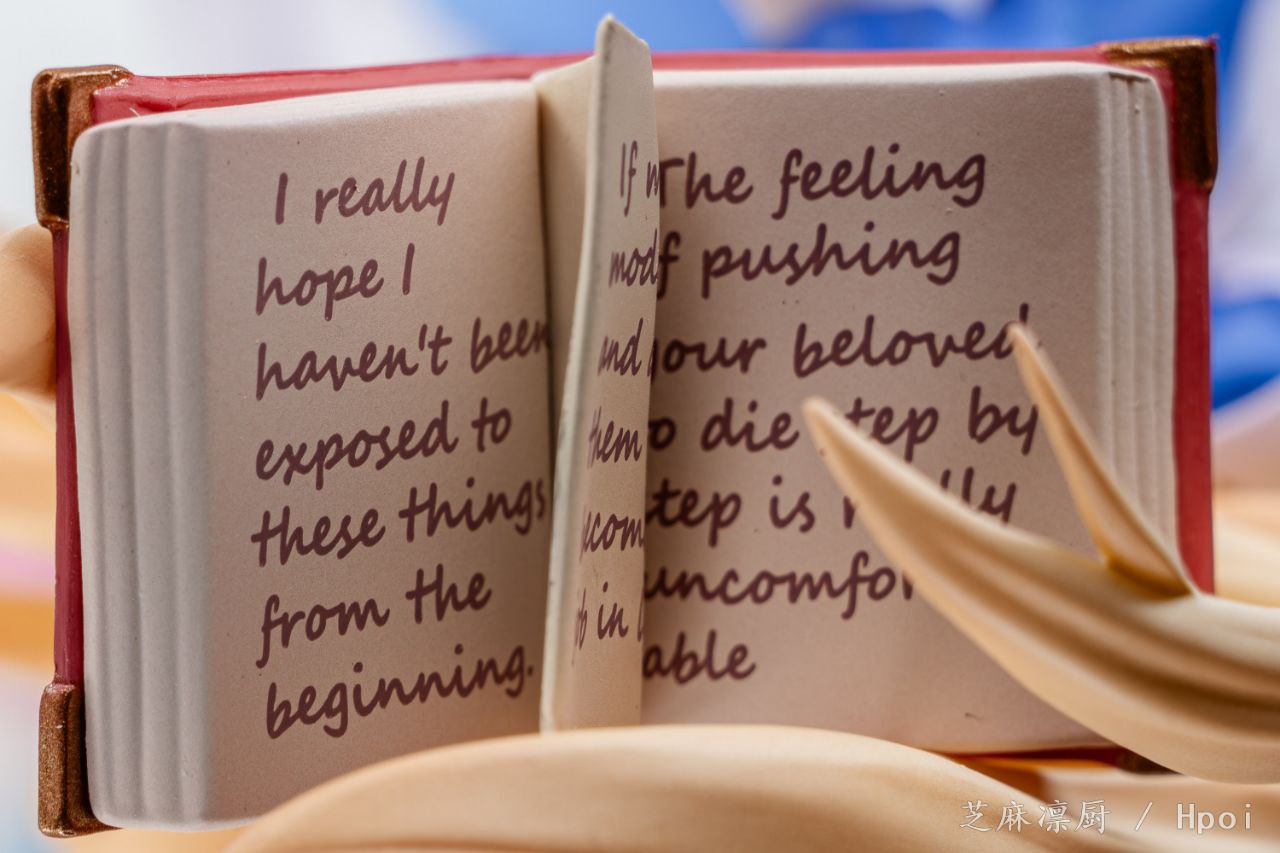 I really
hope I
haven't been
exposed to
these things
from the
beginning.
If
and
them
in
The feeling
f pushing
your beloved
to die step by
step is really
uncomfor
able
芝麻凛厨 / Hpoi